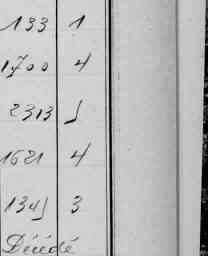 133 1
1700 4
2313 5
1621 4
1345 3
Décédé